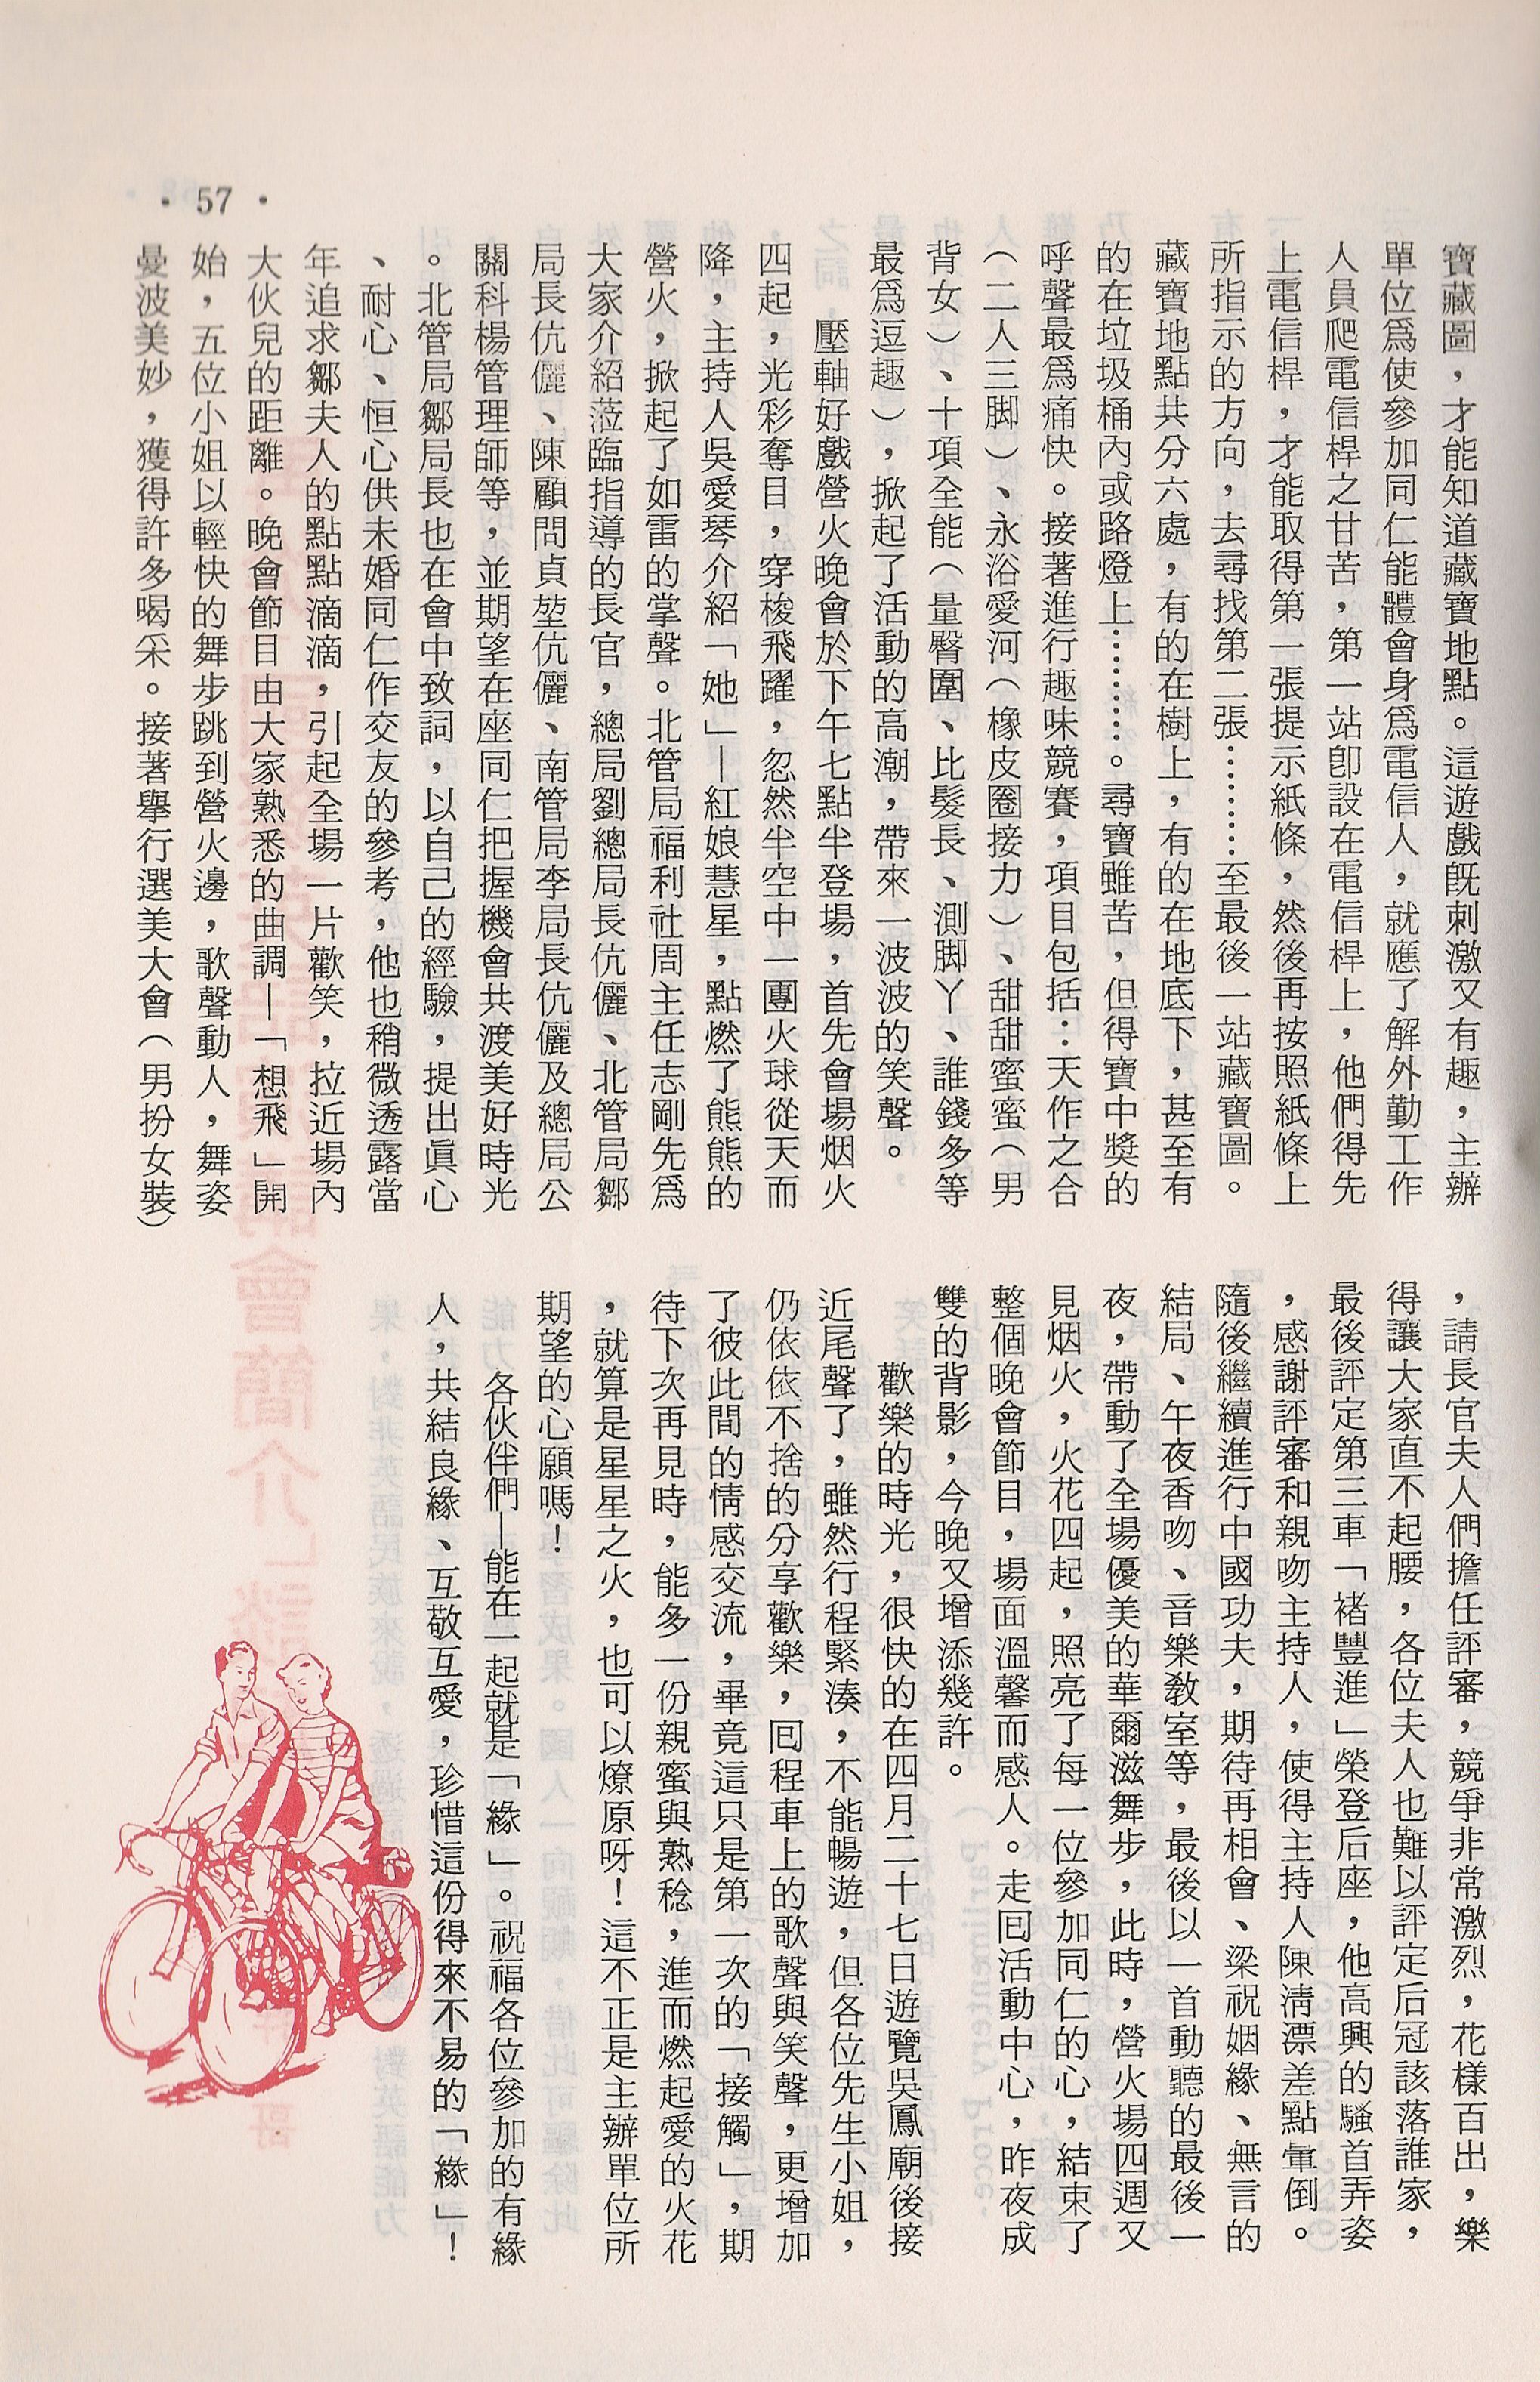 寶藏圖，才能知道藏寶地點。這遊戲既刺激又有趣，主辦
單位爲使參加同仁能體會身爲電信人，就應了解外勤工作
人員爬電信桿之甘苦，第一站卽設在電信桿上，他們得先
上電信桿，才能取得第一張提示紙條，然後再按照紙條上
所指示的方向，去尋找第二張…………至最後一站藏寶圖。
藏寶地點共分六處，有的在樹上，有的在地底下，甚至有
的在垃圾桶內或路燈上…………。尋寶雖苦，但得寶中獎的
呼聲最爲痛快。接著進行趣味競賽，項目包括：天作之合
（二人三脚）、永浴愛河（橡皮圈接力）、甜甜蜜蜜（男
背女）、十項全能（量臀圍、比髮長、測脚丫、誰錢多等
最爲逗趣），掀起了活動的高潮，帶來一波波的笑聲。
壓軸好戲營火晚會於下午七點半登場，首先會場烟火
四起，光彩奪目，穿梭飛躍，忽然半空中一團火球從天而
降，主持人吳愛琴介紹「她」—紅娘慧星，點燃了熊熊的
營火，掀起了如雷的掌聲。北管局福利社周主任志剛先爲
大家介紹蒞臨指導的長官，總局劉總局長伉儷、北管局鄒
局長伉儷、陳顧問貞堃伉儷、南管局李局長伉儷及總局公
關科楊管理師等，並期望在座同仁把握機會共渡美好時光
。北管局鄒局長也在會中致詞，以自己的經驗，提出眞心
、耐心、恒心供未婚同仁作交友的參考，他也稍微透露當
年追求鄒夫人的點點滴滴，引起全場一片歡笑，拉近場內
大伙兒的距離。晚會節目由大家熟悉的曲調—「想飛」開
始，五位小姐以輕快的舞步跳到營火邊，歌聲動人，舞姿
曼波美妙，獲得許多喝采。接著舉行選美大會（男扮女裝）
，請長官夫人們擔任評審，競爭非常激烈，花樣百出，樂
得讓大家直不起腰，各位夫人也難以評定后冠該落誰家，
最後評定第三車「褚豐進」榮登后座，他高興的騷首弄姿
，感謝評審和親吻主持人，使得主持人陳淸漂差點暈倒。
隨後繼續進行中國功夫，期待再相會、梁祝姻緣、無言的
結局、午夜香吻、音樂敎室等，最後以一首動聽的最後一
夜，帶動了全場優美的華爾滋舞步，此時，營火場四週又
見烟火，火花四起，照亮了每一位參加同仁的心，結束了
整個晚會節目，場面溫馨而感人。走囘活動中心，昨夜成
雙的背影，今晚又增添幾許。
歡樂的時光，很快的在四月二十七日遊覽吳鳳廟後接
近尾聲了，雖然行程緊湊，不能暢遊，但各位先生小姐，
仍依依不捨的分享歡樂，囘程車上的歌聲與笑聲，更增加
了彼此間的情感交流，畢竟這只是第一次的「接觸」，期
待下次再見時，能多一份親蜜與熟稔，進而燃起愛的火花
，就算是星星之火，也可以燎原呀！這不正是主辦單位所
期望的心願嗎！
各伙伴們—能在一起就是「緣」。祝福各位參加的有緣
人，共結良緣、互敬互愛，珍惜這份得來不易的「緣」！
• 57 •